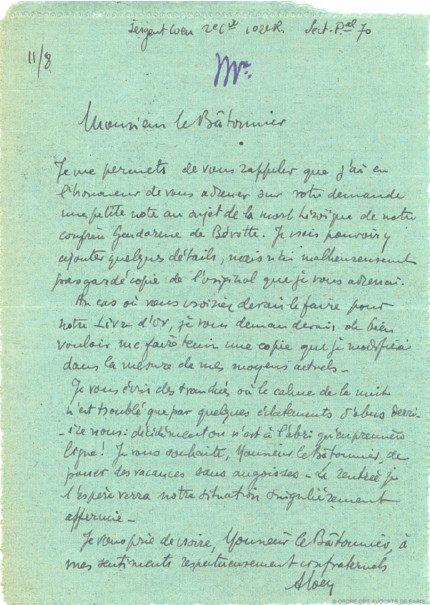 Sergent Weil 2e Cie 102e R. Sect. Pal 70
11/8
Mr.
Monsieur le Bâtonnier
Je me permets de vous rappeler que j'ai eu
l'honneur de vous adresser sur votre demande
une petite note au sujet de la mort héroïque de notre
confrère Gendarme de Bévotte. Je vais pouvoir y
ajouter quelques détails, mais n'ai malheureusement
pas gardé copie de l'original que je vous adressai.
Au cas où vous croiriez devoir le faire pour
notre Livre d'Or, je vous demanderais de bien
vouloir me faire tenir une copie que je modifierai
dans la mesure de mes moyens actuels -
Je vous écris des tranchées où le calme de la nuit
n'est troublé que par quelques éclatements d'obus derri-
-ère nous: décidément on n'est à l'abri qu'en première
ligne! Je vous souhaite, Monsieur le Bâtonnier, de
passer des vacances sans angoisses - La rentrée je
l'espère verra notre situation singulièrement
affermie -
Je vous prie de croire, Monsieur le Bâtonnier, à
mes sentiments respectueusement confraternels
© ORDRE DES AVOCATS DE PARIS